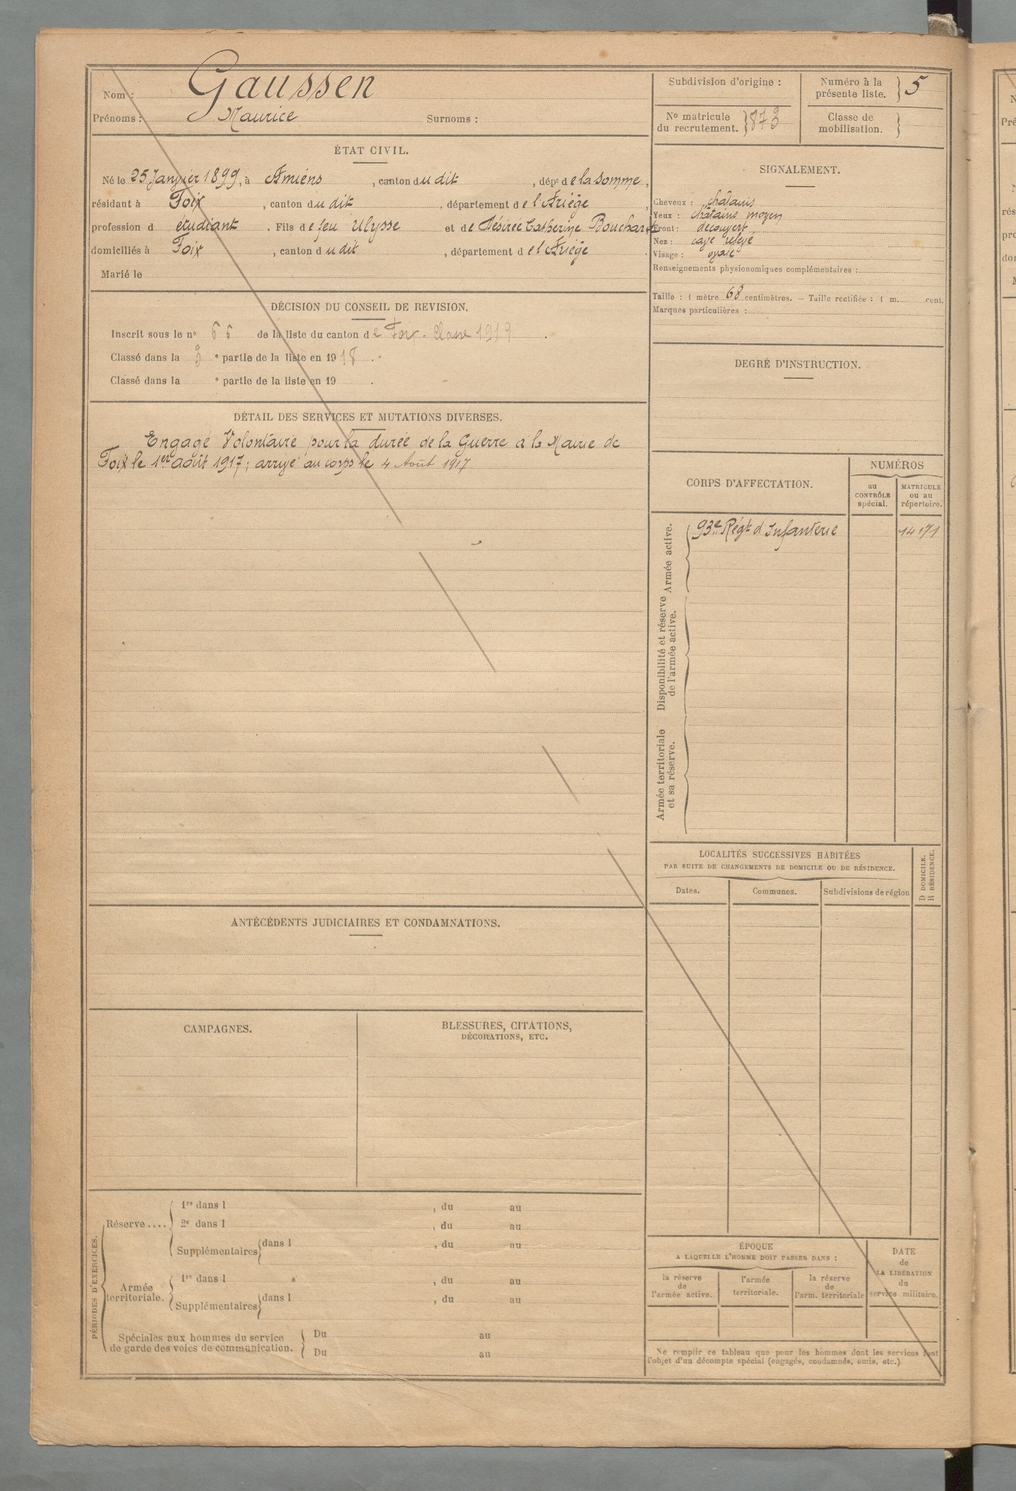 Nom : Gaussen
Prénoms : Maurice Surnoms :
ÉTAT CIVIL.
Né le 25 Janvier 1899, à Amiens, canton du dit, dépt de la Somme,
résidant à Foix, canton du dit, département de l'Ariège
profession d étudiant. Fils de feu Ulysse et de Désirée Catherine
domiciliés à Foix, canton du dit, département de l'Ariège.
Marié le
DÉCISION DU CONSEIL DE REVISION.
Inscrit sous le n° 66 de la liste du canton de Foix - Classe 1919.
Classé dans la 3 e partie de la liste en 1918.
Classé dans la e partie de la liste en 19 .
DÉTAIL DES SERVICES ET MUTATIONS DIVERSES.
Engagé Volontaire pour la durée de la Guerre à la Mairie de
Foix le 1er août 1917; arrivé au corps le 4 Août 1917
ANTÉCÉDENTS JUDICIAIRES ET CONDAMNATIONS.
CAMPAGNES.
BLESSURES, CITATIONS,
DÉCORATIONS, ETC.
PÉRIODES D'EXERCICES.
Réserve....
1re dans l , du au
2e dans l , du au
Supplémentaires dans l , du au
Armée
territoriale.
1re dans l , du au
Supplémentaires dans l , du au
Spéciales aux hommes du service
de garde des voies de communication.
Du au
Du au
Subdivision d'origine :
Numéro à la
présente liste. 5
N° matricule
du recrutement. 873
Classe de
mobilisation.
SIGNALEMENT.
Cheveux : châtains
Yeux : châtains moyen
Front : découvert
Nez : cavé relevé
Visage : ovale
Renseignements physionomiques complémentaires :
Taille : 1 mètre 68 centimètres. — Taille rectifiée : 1 m. cent.
Marques particulières :
DEGRÉ D'INSTRUCTION.
CORPS D'AFFECTATION.
NUMÉROS
au
CONTRÔLE
spécial.
MATRICULE
ou au
répertoire.
Armée active.
93e Régt d'Infanterie
Disponibilité et réserve
de l'armée active.
Armée territoriale
et sa réserve.
LOCALITÉS SUCCESSIVES HABITÉES
PAR SUITE DE CHANGEMENTS DE DOMICILE OU DE RÉSIDENCE.
D DOMICILE.
R RÉSIDENCE.
Dates.
Communes.
Subdivisions de région
ÉPOQUE
A LAQUELLE L'HOMME DOIT PASSER DANS :
la réserve
de
l'armée active.
l'armée
territoriale.
la réserve
de
l'arm. territoriale
DATE
de
LA LIBÉRATION
du
service militaire.
Ne remplir ce tableau que pour les hommes dont les services font
l'objet d'un décompte spécial (engagés, condamnés, omis, etc.)